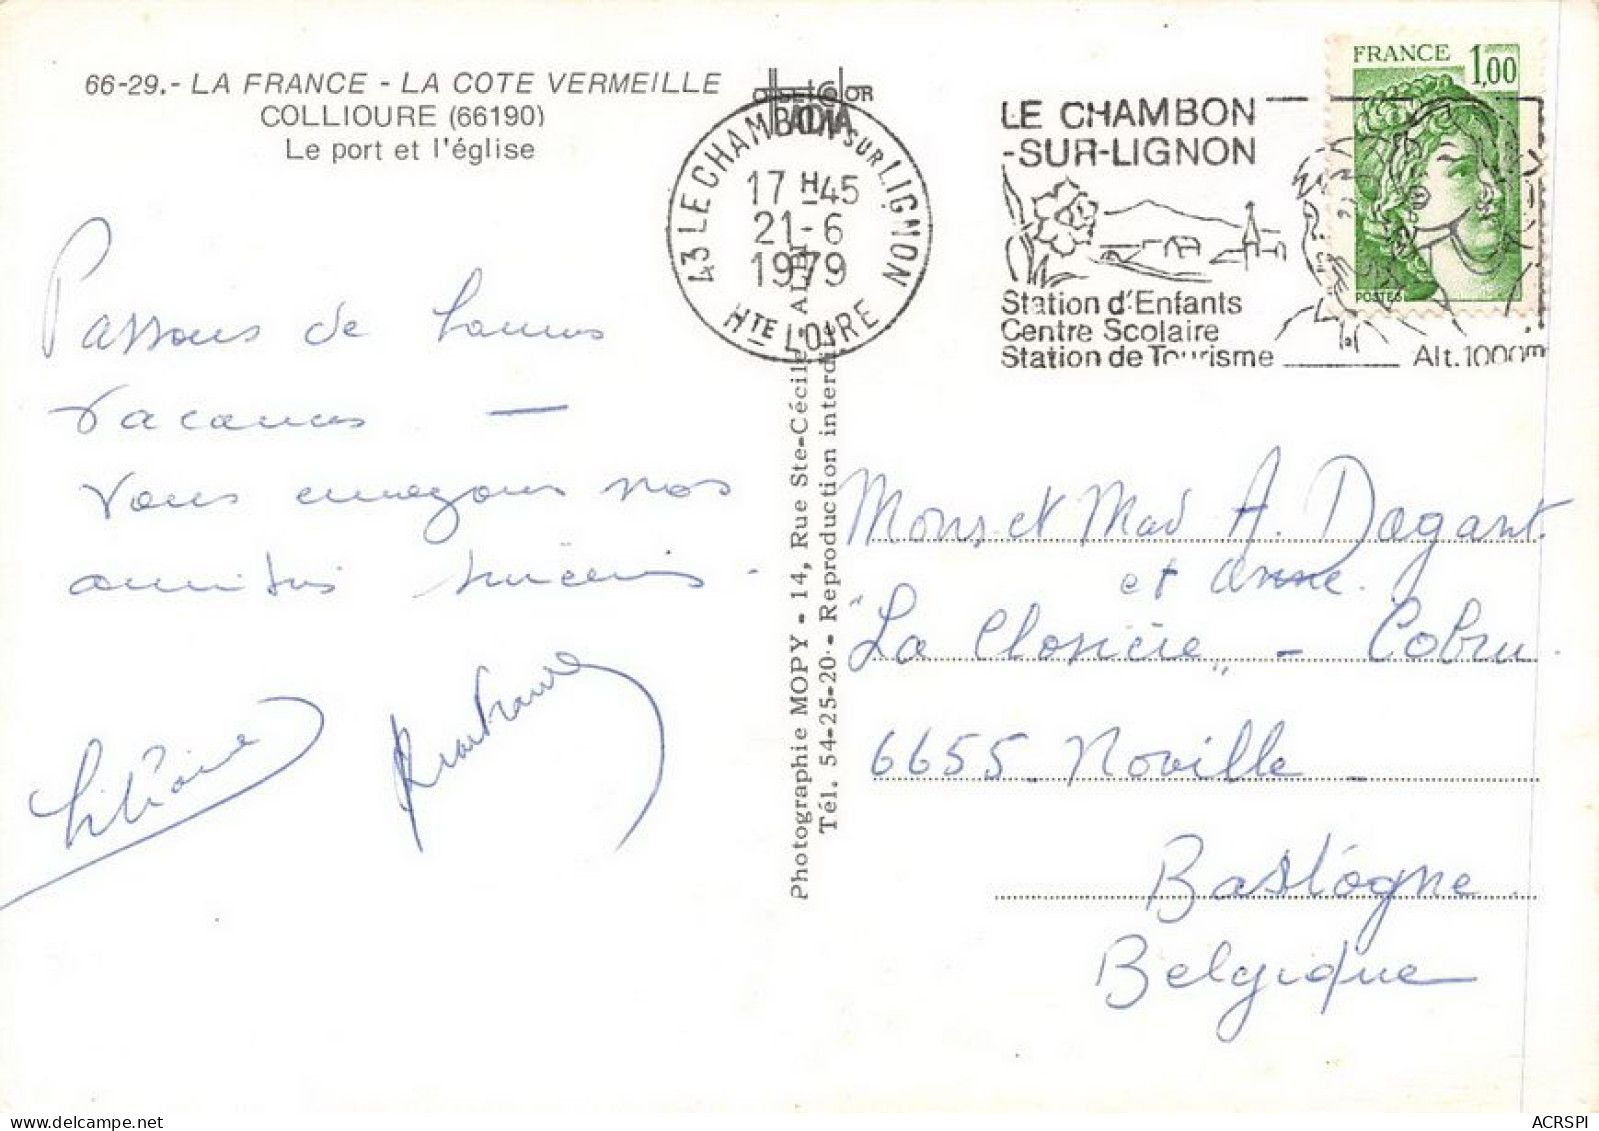 66-29.- LA FRANCE - LA COTE VERMEILLE
COLLIOURE (66190)
Le port et l'église
43 LE CHAMBON SUR LIGNON
17 H 45
21-6
1979
HTE LOIRE
LE CHAMBON
-SUR-LIGNON
Station d'Enfants
Centre Scolaire
Station de Tourisme
Alt. 1000m
FRANCE 1,00
POSTES
Passons de bonnes
vacances —
Vous envoyons nos
amitiés sincères.
Photographie MOPY - 14, Rue Ste-Cécile - ALBI
Tél. 54-25-20 - Reproduction interdite
Mons et Mad A. Dagant
et Anne.
"La Closerie" - Cobru.
6655 - Noville -
Bastogne.
Belgique
ACRSPI